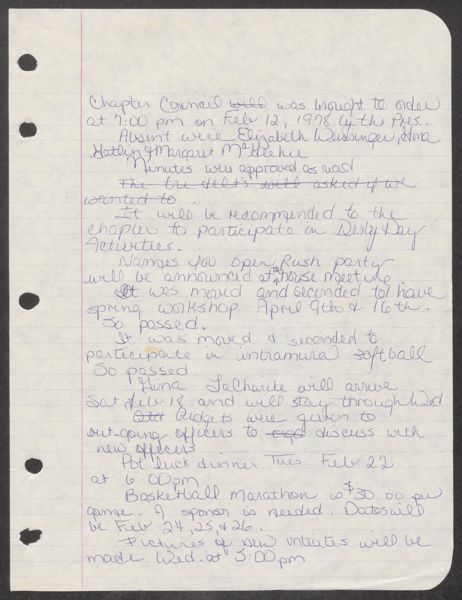 Chapter Council will was brought to order
at 7:00 pm on Feb 12, 1978 by the Pres.
Absent were Elizabeth Weissinger, Gina
Gatlin & Margaret
Minutes were approved as read
The tri delt's will asked if we
wanted to.
It will be recommended to the
chapter to participate in Derby Day
Activities.
Names for open Rush party
will be announced at the house meeting
It was moved and seconded to have
spring workshop April 9th & 16th.
So passed.
It was moved & seconded to
participate in intramural softball
So passed
Gina LaCharite will arrive
Sat Feb 18 and will stay through Wed
Old Budgets were given to
out-going officers to discuss with
new officers
Pot luck dinner Tues Feb 22
at 6:00 pm
Basketball Marathon is $30.00 per
game. A sponsor is needed. Dates will
be Feb 24, 25, & 26.
Pictures of new initiates will be
made Wed. at 5:00 pm